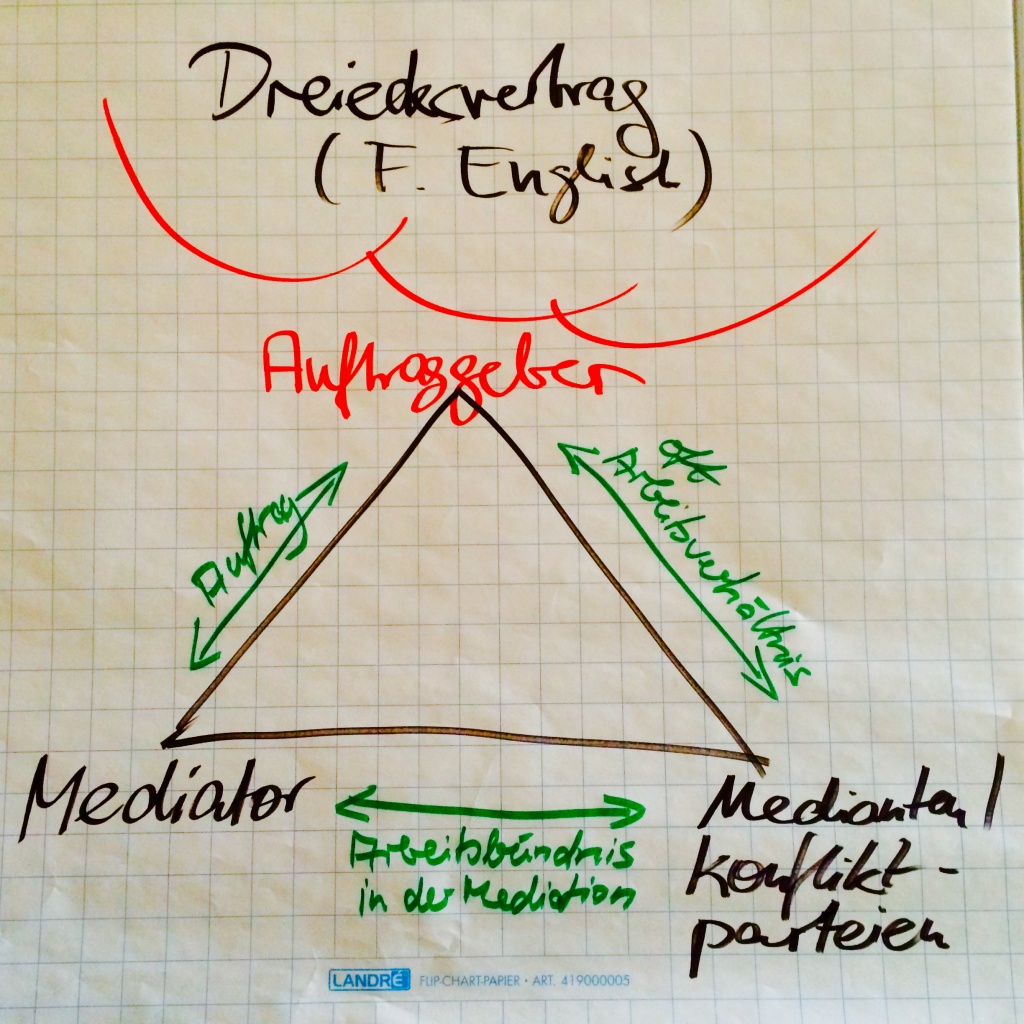 Dreiecksvertrag
(F. English)
Auftraggeber
Auftrag
oft
Arbeitsverhältnis
Mediator
Arbeitsbündnis
in der Mediation
Medianten/
Konflikt-
parteien
LANDRÉ FLIP-CHART-PAPIER • ART. 419000005